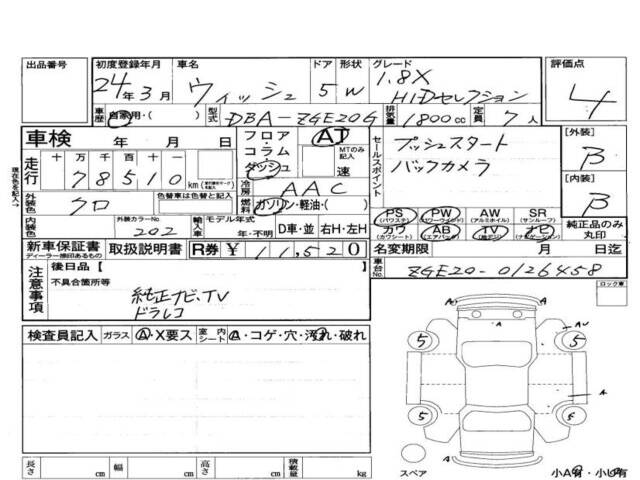 出品番号
初度登録年月
24年3月
車名
ウィッシュ
ドア
5
形状
W
グレード
1.8X
HIDセレクション
評価点
4
車歴
自家用・( )
型式
DBA-ZGE20G
排気量
1800cc
定員
7人
車検 年 月 日
フロア・コラム・ダッシュ
AT
MTのみ記入
速
セールスポイント
プッシュスタート
バックカメラ
[外装]
B
[内装]
B
走行
十万千百十
78510 km
現在色を記入→
冷房
AAC
外装色
クロ
色替車は色替と記入
燃料
ガソリン・軽油・( )
PS
(パワステ)
PW
(パワーウィンド)
AW
(アルミホイル)
SR
(サンルーフ)
カワ
(カワシート)
AB
(エアバッグ)
TV
ナビ
(ナビゲーション)
純正品のみ丸印
内装色
外装カラーNo.
202
輸入車
モデル年式
年・不明
D車・並
右H・左H
新車保証書
ディーラー捺印あるもの
取扱説明書
R券
¥11,520
名変期限 月 日迄
車台No.
ZGE20-0126458
注意事項
後日品[ ]
不具合箇所等
純正ナビ、TV
ドラレコ
ロック車
検査員記入
ガラス
A・X要ス
室内シート
A・コゲ・穴・汚れ・破れ
A
A
A
AU
A
5
5
5
5
スペア
小A有・小U有
長さ cm
幅 cm
高さ cm
積載量 kg